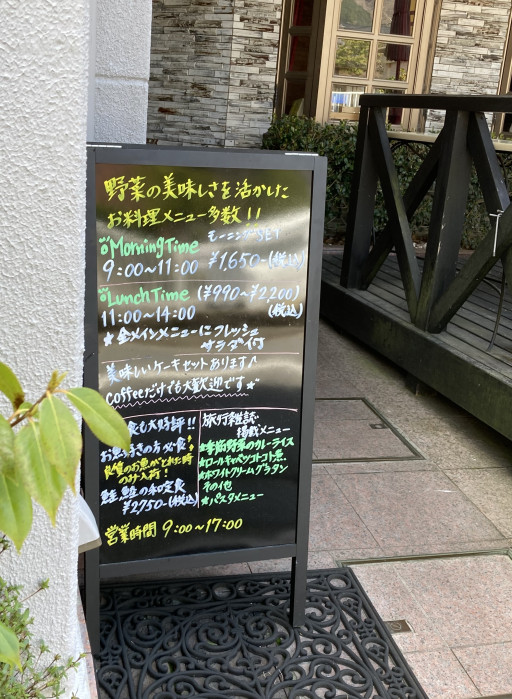 野菜の美味しさを活かした
お料理メニュー多数!!
Morning Time モーニングSET
9:00~11:00 ¥1,650-(税込)
Lunch Time (¥990~¥2,200)
11:00~14:00 (税込)
★全メインメニューにフレッシュ
サラダ付
美味しいケーキセットあります♪
Coffeeだけでも大歓迎です★
食も大好評!!
お魚好きの方必食
良質のお魚がとれた時
のみ入荷!
鮭、鯱の和定食
¥2750-(税込)
旅行雑誌
掲載メニュー
★季節野菜のカレーライス
★ロールキャベツコトコト煮
★ホワイトクリームグラタン
その他
★パスタメニュー
営業時間 9:00~17:00